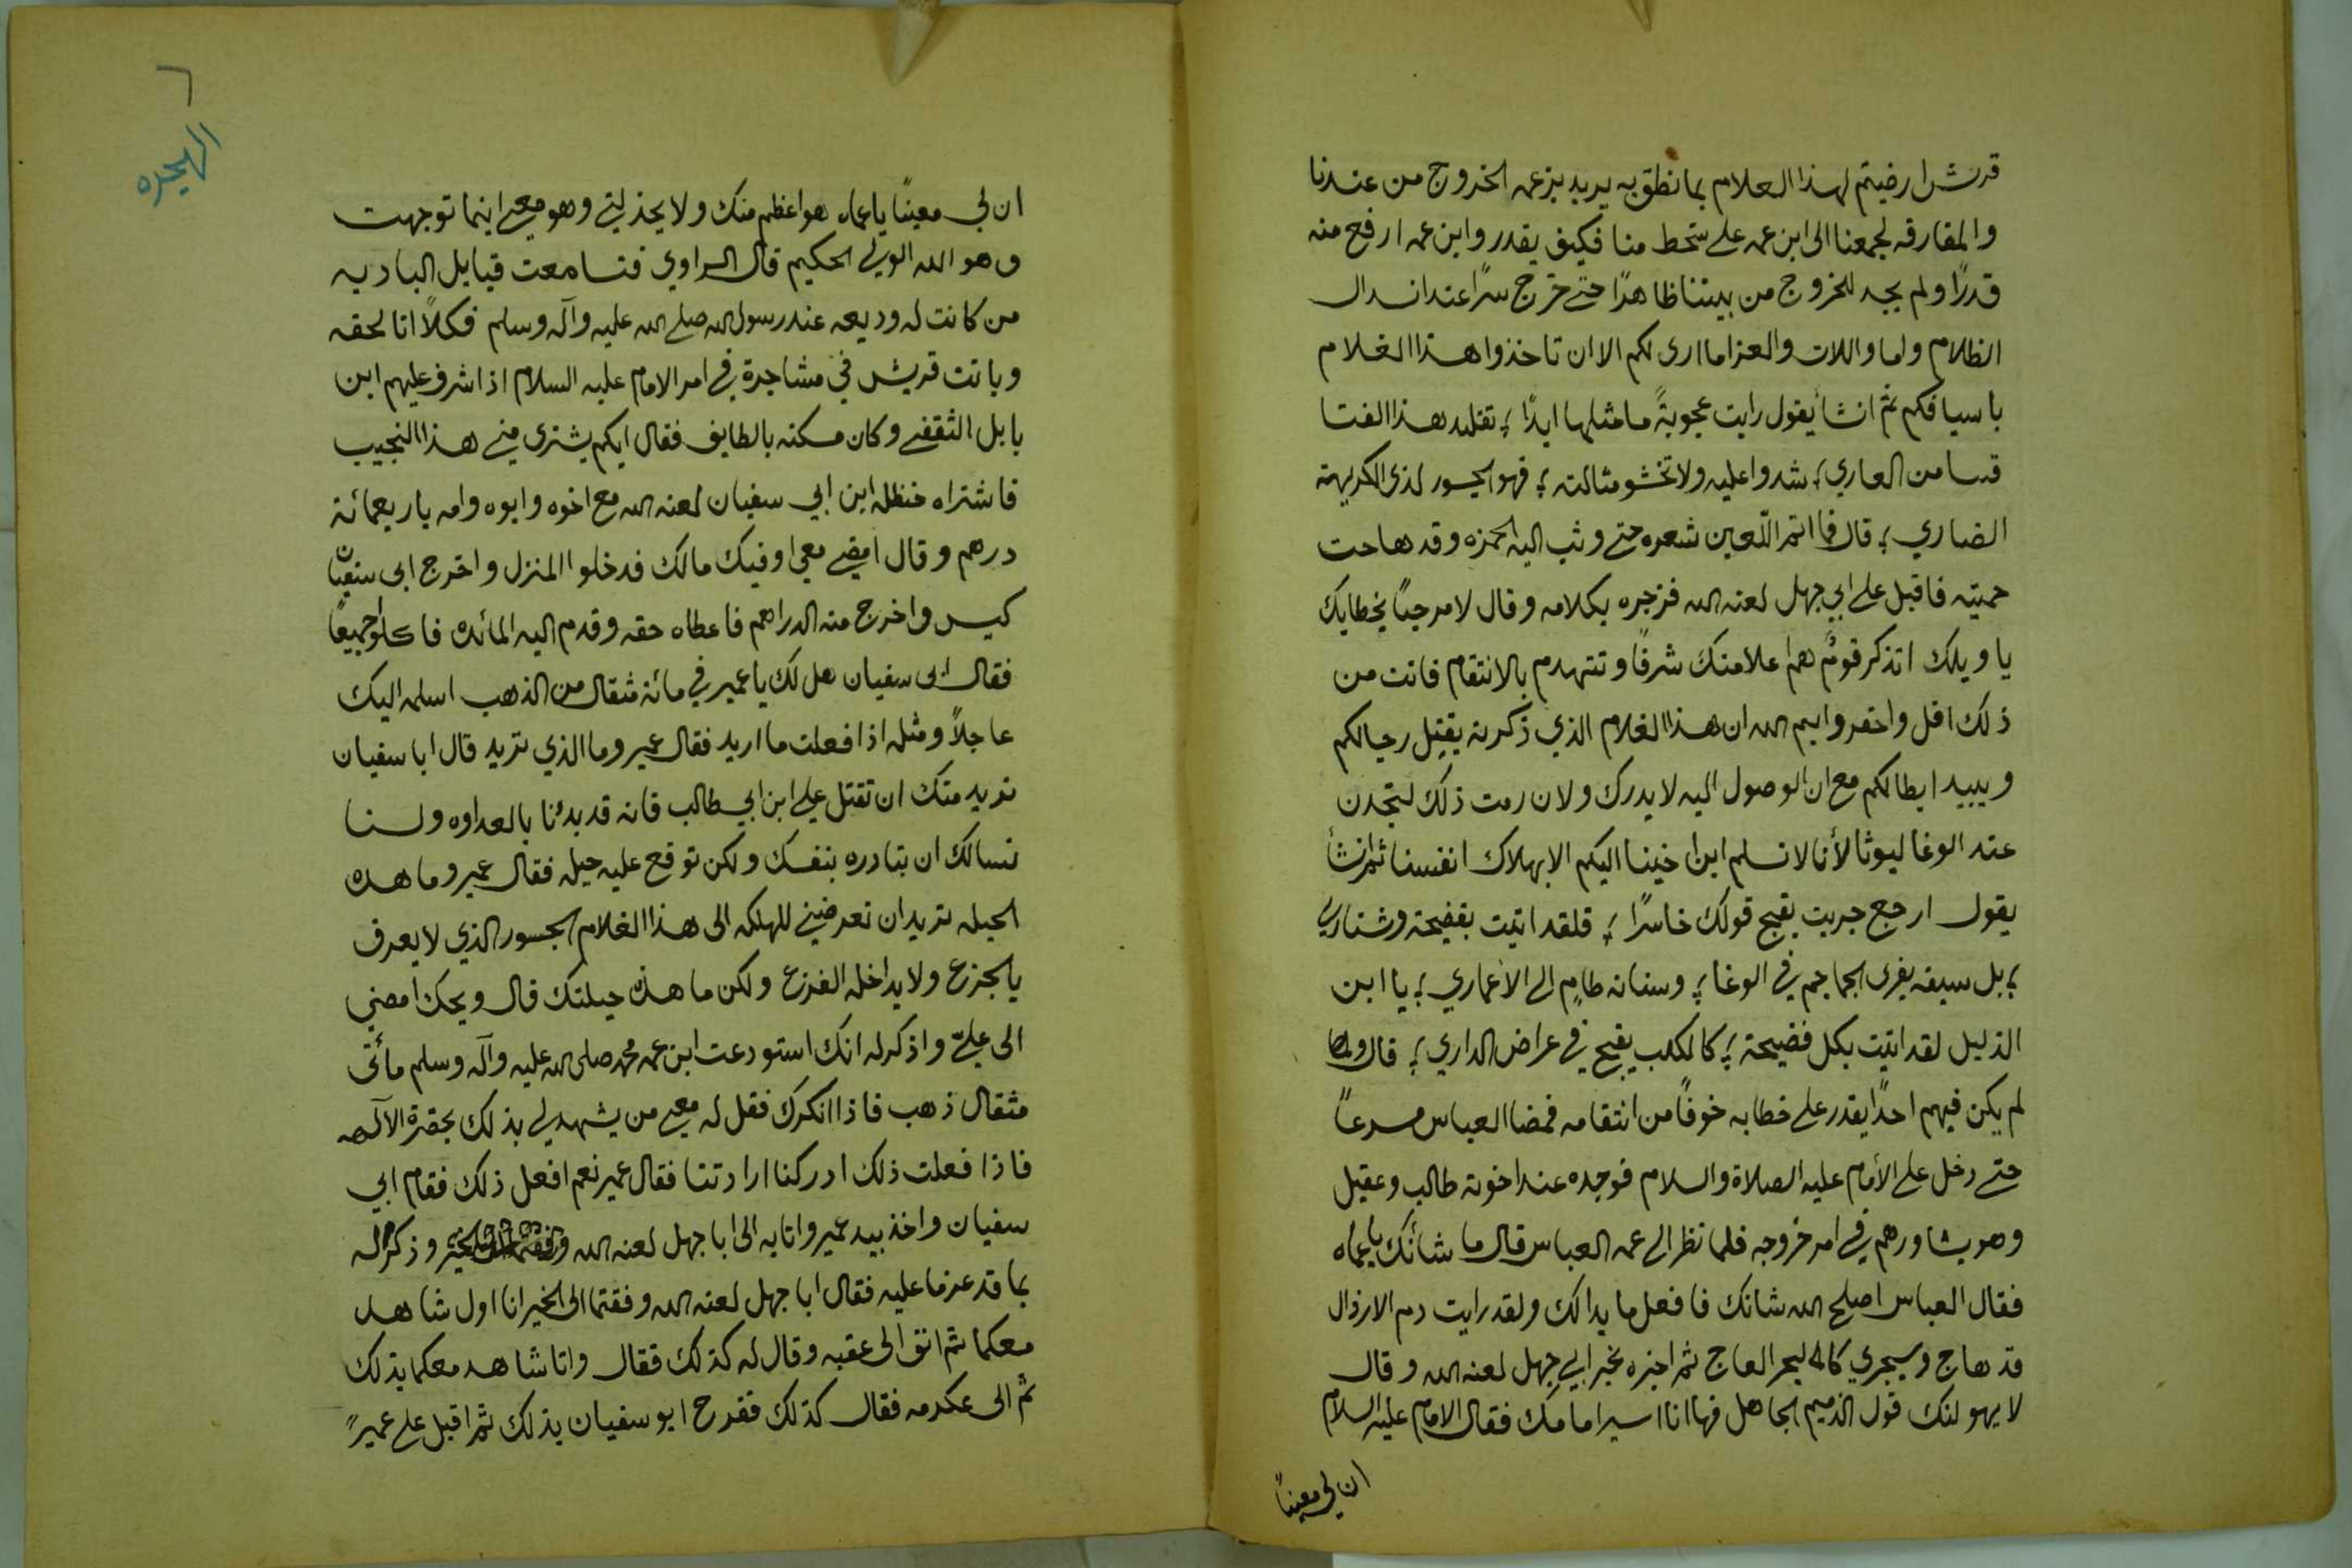 قريش ارضيتم لهذا الغلام بما نطق به يريد بزعمه الخروج من عندنا
والمفارقه لجمعنا الى ابن عمه على سخط منا فكيف يقدر وابن عمه ارفع منه
قدرًا ولم يجد للخروج من بيننا ظاهرًا حتى خرج سرًا عند انسدال
الظلام واما واللات والعزا ما ارى لكم الا ان تاخذوا هذا الغلام
باسيافكم ثم انشأ يقول رايت عجوبةً ما مثلها ابدًا ؛ تقليد هذا الفتا
قسا من العاري ؛ شدوا عليه ولا تخشو مثالته ؛ فهو الجسور لذي الكريهة
الضاري ؛ قال فما اتم اللّعين شعره حتى وثب اليه الحمزه وقد هاجت
حميته فاقبل على ابي جهل لعنه الله فزجره بكلامه وقال لا مرحبًا بخطابك
يا ويلك اتذكر قومٌ هم اعلا منك شرفًا وتتهدم بالانتقام فانت من
ذلك اقل واحقر وايم الله ان هذا الغلام الذي ذكرته يقتل رجالكم
ويبيد ابطالكم مع ان الوصول اليه لا يدرك ولان رمت ذلك لتجدن
عند الوغا ليوثا لأنا لا نسلم ابن اخينا اليكم الا بهلاك انفسنا ثم انشأ
يقول ارجع جريت بقبح قولك خاسرًا ؛ فلقد اتيت بفضيحة وشناري
؛ بل سيفه يفرى الجماجم في الوغا ؛ وسنانه طامٍ الى الاغماري ؛ يا ابن
الذليل لقد اتيت بكل فضيحة ؛ كالكلب يقبح في عراض الداري ؛ قال ولما
لم يكن فيهم احدًا يقدر على خطابه خوفًا من انتقامه فمضا العباس مسرعًا
حتى دخل على الأمام عليه الصلاة والسلام فوجده عند اخوته طالب وعقيل
وهو يشاورهم في امر خروجه فلما نظر الى عمه العباس قال ما شأنك يا عماه
فقال العباس اصلح الله شانك فافعل ما بدا لك ولقد رايت دم الارذال
قد هاج وسيجري كالبحر العاج ثم اخبره بخبر ابي جهل لعنه الله وقال
لا يهولنك قول الذميم الجاهل فها انا اسير امامك فقال الامام عليه السلام
ان لي معينًا
٦
الهجره
ان لي معينًا يا عماه هو اعظم منك ولا يخذلني وهو معي اينما توجهت
وهو الله الولي الحكيم قال الراوي فتسامعت قبايل الباديه
من كانت له وديعه عند رسول الله صلى الله عليه وآله وسلم فكلًا اتا لحقه
وباتت قريش في مشاجرة في امر الامام عليه السلام اذا شرف عليهم ابن
بابل الثقفي وكان مسكنه بالطايف فقال ايكم يشتري مني هذا النجيب
فاشتراه حنظله ابن ابي سفيان لعنه الله مع اخوه وابوه وامه باربعمائة
درهم وقال امضي معي اوفيك مالك فدخلوا المنزل واخرج ابى سفيان
كيس واخرج منه الدراهم فاعطاه حقه وقدم اليه المائده فاكلو جميعًا
فقال ابى سفيان هل لك يا عمير في مائة مثقال من الذهب اسلمه اليك
عاجلًا ومثله اذا فعلت ما اريد فقال عمير وما الذي تريد قال ابا سفيان
نريد منك ان تقتل علي ابن ابي طالب فانه قد بدئنا بالعداوه ولسنا
نسالك ان تبادره بنفسك ولكن توقع عليه حيله فقال عمير وما هذه
الحيله تريد ان تعرضني للهلكه الى هذا الغلام الجسور الذي لا يعرف
بالجزع ولا يداخله الفزع ولكن ما هذه حيلتك قال ويحك امضي
الى عليّ واذكر له انك استودعت ابن عمه محمد صلى الله عليه وآله وسلم مأتى
مثقال ذهب فاذا انكرك فقل له معي من يشهد لي بذلك بحضرة الآلهه
فاذا فعلت ذلك ادركنا ارادتنا فقال عمير نعم افعل ذلك فقام ابي
سفيان واخذ بيد عمير واتا به الى ابا جهل لعنه الله وذكر له
بما قد عزما عليه فقال ابا جهل لعنه الله وفقتما الى الخير انا اول شاهد
معكما ثم اتو الى عقبه وقال له كذلك فقال وانا شاهد معكما بذلك
ثم الى عكرمه فقال كذلك ففرح ابو سفيان بذلك ثم اقبل على عميرً